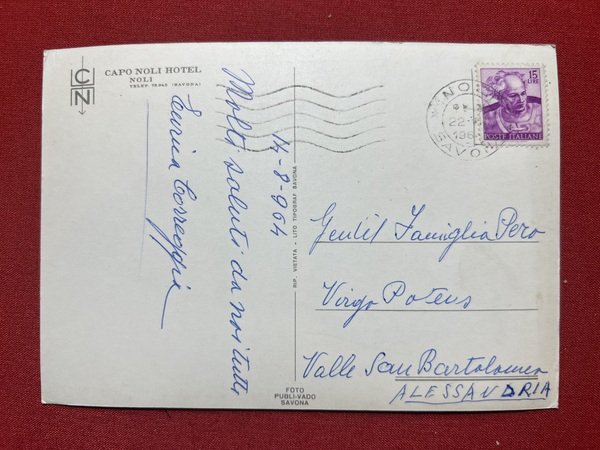 CN
CAPO NOLI HOTEL
NOLI
TELEF. 78.943 (SAVONA)
14-8-964
Molti saluti da noi tutti
Enrica Correggia
RIP. VIETATA - LITO TIPOGRAF. SAVONA
FOTO
PUBLI-VADO
SAVONA
15
LIRE
POSTE ITALIANE
NO
22-
196
SAVO
Gentil Famiglia Pero
Virgo Potens
Valle San Bartolomeo
ALESSANDRIA